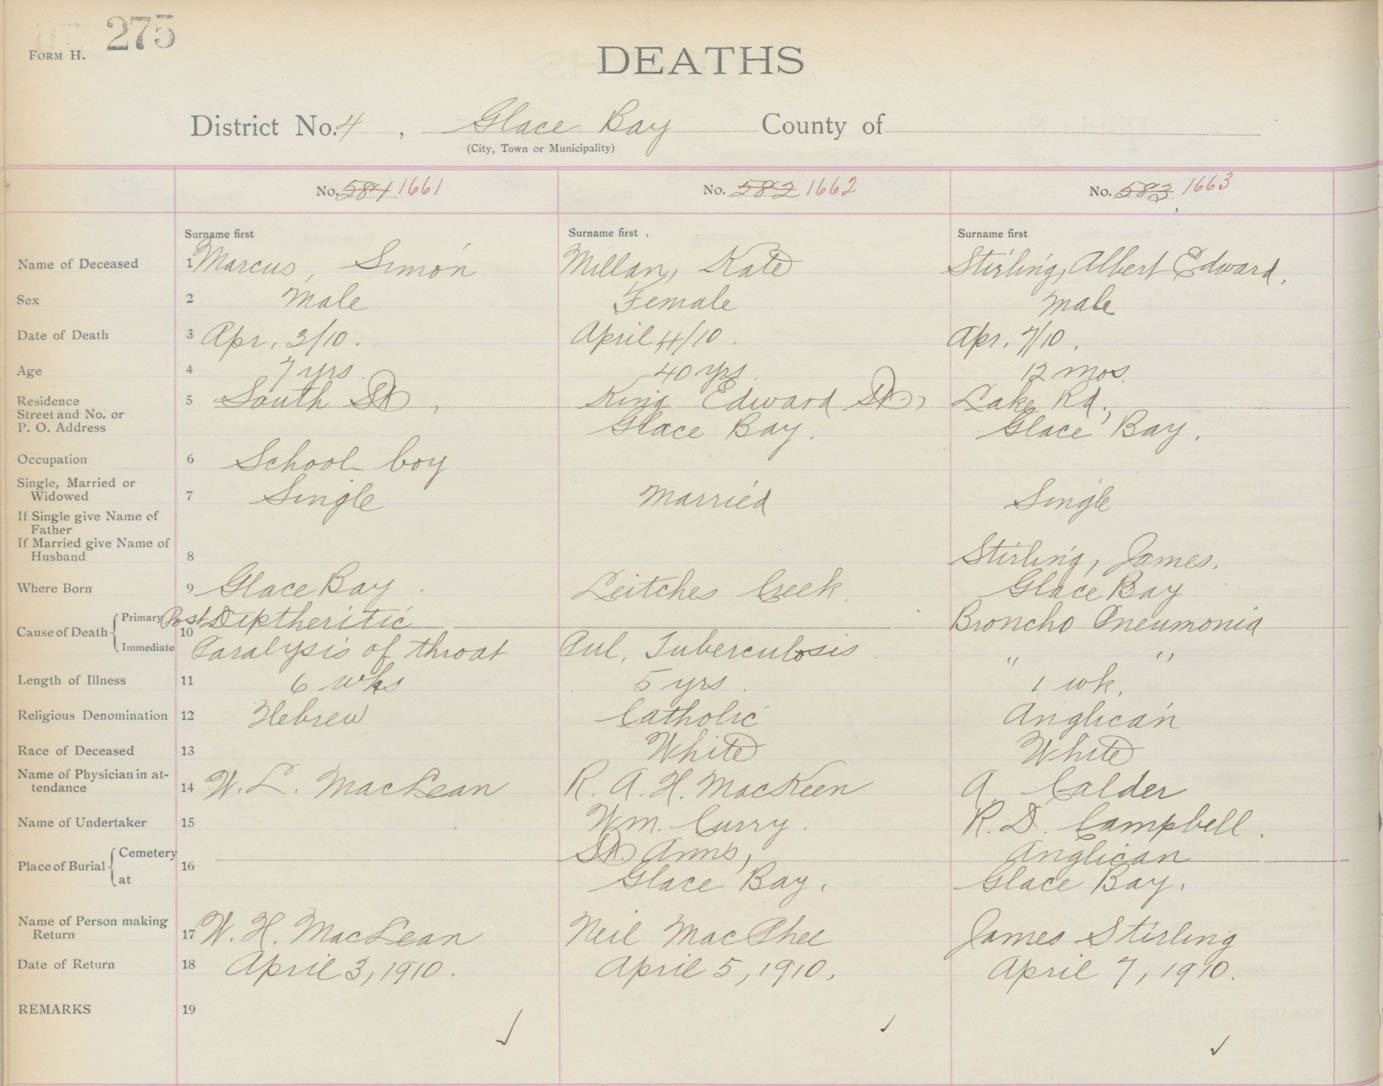 275
FORM H.
DEATHS
District No. 4, Glace Bay County of
(City, Town or Municipality)
No. 581 1661 No. 582 1662 No. 583 1663
Surname first Surname first Surname first
Name of Deceased 1 Marcus, Simon Millan, Kate Stirling, Albert Edward.
Sex 2 Male Female Male
Date of Death 3 Apr. 3/10. April 4/10. Apr. 7/10.
Age 4 7 yrs 40 yrs. 12 mos.
Residence 5 South St, King Edward St, Lake Rd,
Street and No. or
P. O. Address Glace Bay. Glace Bay.
Occupation 6 School boy
Single, Married or
Widowed 7 Single Married Single
If Single give Name of
Father
If Married give Name of
Husband 8 Stirling, James.
Where Born 9 Glace Bay. Leitches Creek. Glace Bay
Cause of Death Primary 10 Post Diptheritic Broncho Pneumonia
Immediate Paralysis of throat Pul. Tuberculosis. " "
Length of Illness 11 6 wks 5 yrs. 1 wk.
Religious Denomination 12 Hebrew Catholic Anglican
Race of Deceased 13 White White
Name of Physician in at-
tendance 14 W. L. MacLean R. A. H. MacKeen A Calder
Name of Undertaker 15 Wm. Curry. R. D. Campbell.
Place of Burial Cemetery 16 St Anns, Anglican
at Glace Bay. Glace Bay.
Name of Person making
Return 17 W. H. MacLean Neil MacPhee James Stirling
Date of Return 18 April 3, 1910. April 5, 1910. April 7, 1910.
REMARKS 19